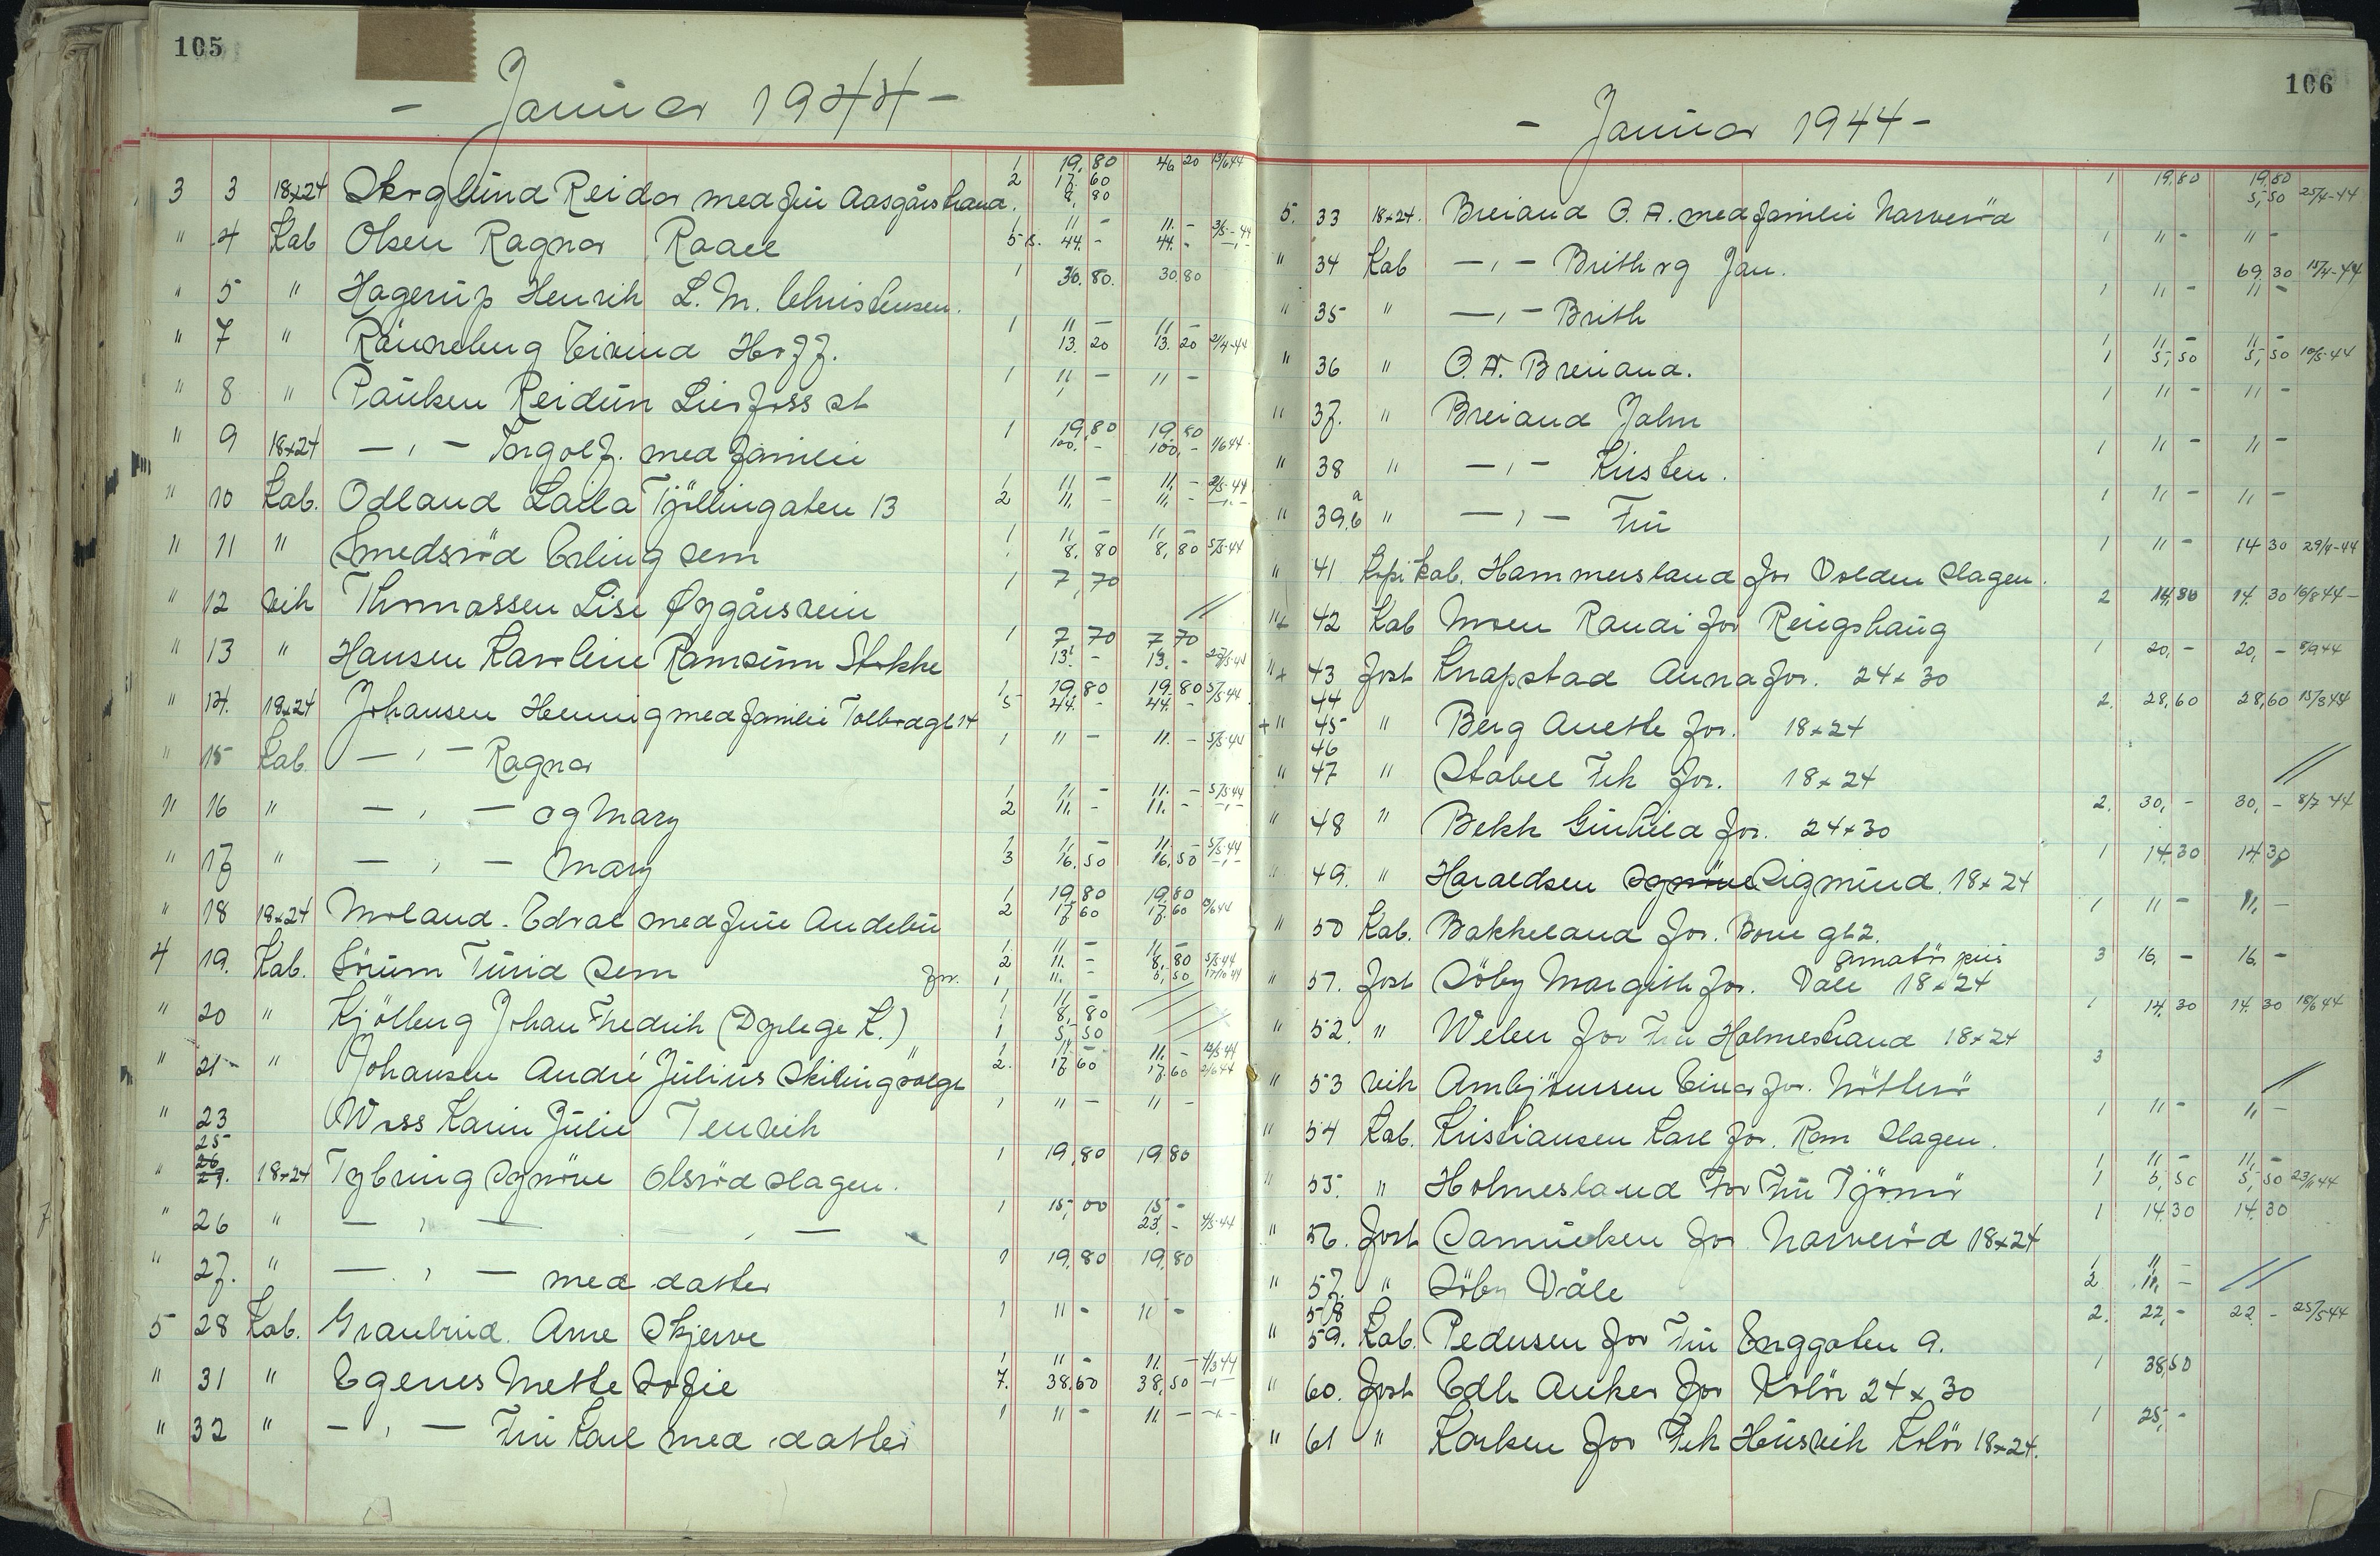 105
- Januar 1944 -
1 19,80 46 20 13/6 44
3 3 18x24 Skoglund Reidar med fru Aasgårstrand. 2 17.60
8,80
" 4 Kab Olsen Ragnar Raael 1 11 - 11. - 3/5-44
5 44. - 44. -
" 5 " Hagerup Henrik L. M. Christensen. 1 30,80. 30,80
" 7 " Eivind 1 11 - 11 -
13. 20 13. 20 2/4-44
" 8 " Paulsen Reidun Lierfoss st 1 11 - 11 -
" 9 18x24 -,- Ingolf. med familie 1 19,80 19,80
100. - 100, - 1/6 44
" 10 Kab. Odland Laila Tjöllingaten 13 1 11 - 11. - 2/5-44
2 11, - 11, - -,-
" 11 " Smedsröd Erling Sem 1 11 - 11 -
8,80 8,80 5/5-44
" 12 vik Thomassen Lise Øygårsvein 1 7,70 //
" 13 " Hansen Karoline Ramsum Stokke 1 7 70 7 70
13. - 13. -
" 14. 18x24 Johansen Henning med familie Tolbodgt 14 1 19,80 19,80 5/5-44
5 44. - 44. -
" 15 Kab. -,- Ragnar 1 11 - 11. - 5/5-44
" 16 " -,- og Mary 1 11. - 11. - 5/5-44
2 11. - 11. - -,-
" 17 " -,- Mary 1 11. - 11. - 5/5-44
3 16.50 16,50 -,-
" 18 18x24 Moland. Edval med frue Andebu 1 19,80 19,80
2 17 60 17.60
4 19. Kab. Sörum Turid Sem 1 11 - 11, -
2 11. - 8,80 5/5-44
for. 1 11. - 5,50 17/10 44
" 20 " Kjölberg Johan Fredrik (Dyrlege K.) 1 11 -
8,80
1 5 50
" 21 " Johansen André Julius 1 11 - 11. -
2. 17 60 17.60 2/6 44
" 23 Woss Karin Julie Tenvik 1 11 - 11 -
25
" 18x24 Tybring Synöve Olsröd Slagen. 1 19,80 19 80
" 26 " -,- - 1 15,00 15 -
23, - 4/5-44
" 27. " -,- med datter 1 19,80 19,80
5 28 Kab. Granlund. Arne Skjerve 1 11 - 11 -
" 31 " Egenes Mette Sofie 1 11 - 11. - 4/3 44
7. 38,60 38,50 -,-
" 32 " -,- Fru Karl med datter 1 11 - 11. - -,-
106
- Januar 1944 -
1 19,80 19,80
5,50 25/4-44
5. 33 18x24. Breiand O. A. med familie Narveröd
" 34 Kab -,- Brith og Jan. 1 11 - 11 -
69,30 15/4-44
" 35 " -,- Brith 1 11 - 11 -
" 36 " O. A. Breiand. 1 11 - 11 -
1 5,50 5,50 10/5-44
" 37. " Breiand John 1 11 - 11 -
" 38 " -,- Kirsten. 1 11 - 11 -
" 39, a b " -,- Fru 1 11 - 11 -
" 41 Kopi Kab. Hammersland for Volden Slagen. 1 11 - 14 30 29/4-44
"+ 42 Kab Moen Randi for Ringshaug 2 14,30 14. 30 16/8 44 -
"+ 43 Fost Knapstad Anna for. 24x30 1 20, - 20, - 5/9 44
44
+" 45 " Berg Anette for. 18x24 2. 28,60 28,60 15/3 44
46
" 47 " Stabel Frk for. 18x24 //
" 48 " Bekk Gunhild for. 24x30 2. 30, - 30, - 8/7 44
" 49. " Haraldsen Sigmund. 18x24 1 14,30 14,30
" 50 Kab. Bakkeland for. Borre gt 2. 1 11 - 11, -
amatör pris
" 51. Fost Söby Margith for. Våle 18x24 3 16, - 16, -
" 52. " Weber for Fru Holmestrand 18x24 1 14. 30 14. 30 18/6 44
" 53 vik Ambjörnsen Einar for. Nötterö 3 //
" 54 Kab. Kristiansen Karl for. Rom Slagen. 1 11 - 11, -
" 55. " Holmesland for Fru Tjömö 1 11 - 11, -
1 5,50 5,50 23/11 44
" 56. Fost Samuelsen for Narveröd 18x24 1 14.30 14.30
" 57. " Söby Våle 1 11, -
2. 11, - //
58
" 59. Kab. Pedersen for Fru Enggaten 9. 2. 22, - 22. - 25/5 44
" 60. Fost Edh Anker for Kolör 24x30 1 38,50
" 61 " Karlsen for Frk Husvik Kolör 18x24. 1 25, -